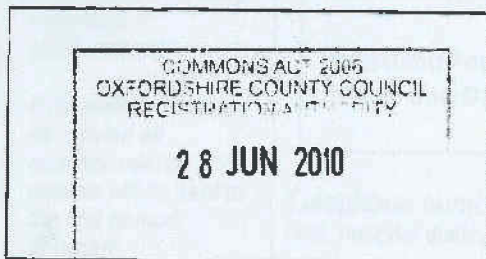 COMMONS ACT 2006
OXFORDSHIRE COUNTY COUNCIL
REGISTRATION AUTHORITY
28 JUN 2010